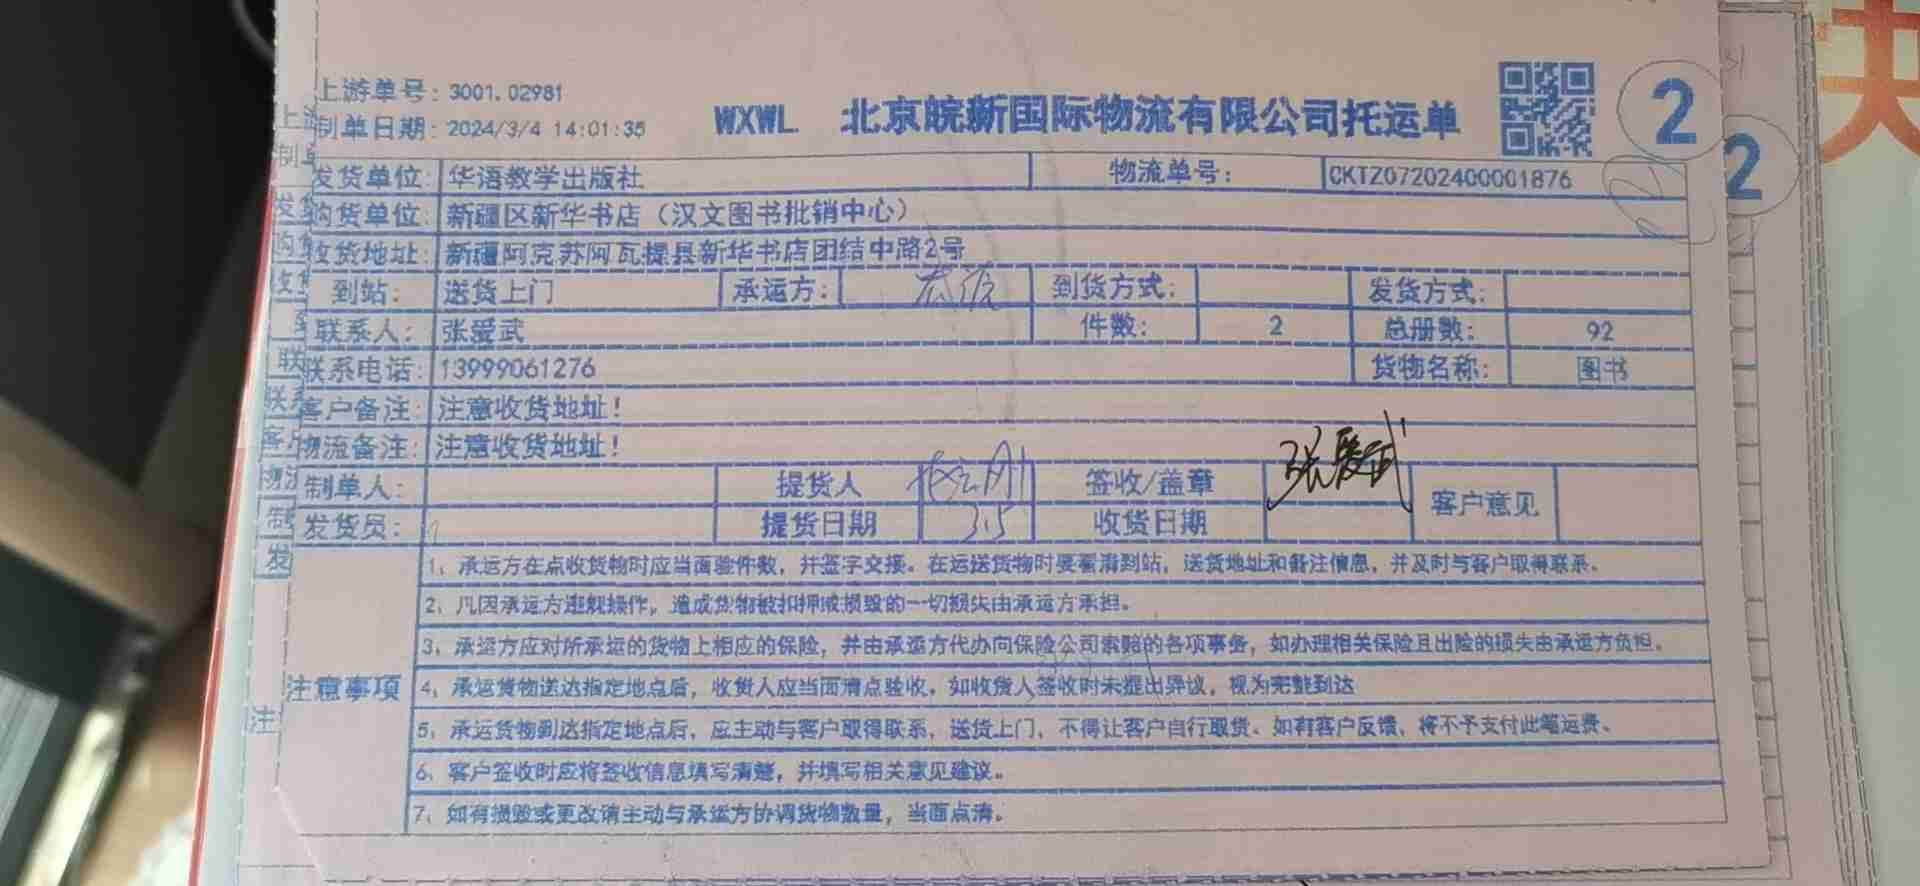 上游单号: 3001.02981
制单日期: 2024/3/4 14:01:35
WXWL 北京皖新国际物流有限公司托运单
2
2
发货单位: 华语教学出版社 物流单号: CKTZ07202400001876
购货单位: 新疆区新华书店（汉文图书批销中心）
收货地址: 新疆阿克苏阿瓦提县新华书店团结中路2号
到站: 送货上门 承运方: 到货方式: 发货方式:
联系人: 张爱武 件数: 2 总册数: 92
联系电话: 13999061276 货物名称: 图书
客户备注: 注意收货地址!
物流备注: 注意收货地址!
制单人: 提货人 签收/盖章 张爱武 客户意见
发货员: 提货日期 3.5 收货日期
注意事项
1、承运方在点收货物时应当面验件数，并签字交接。在运送货物时要看清到站，送货地址和备注信息，并及时与客户取得联系。
2、凡因承运方违规操作，造成货物被扣押或损毁的一切损失由承运方承担。
3、承运方应对所承运的货物上相应的保险，并由承运方代办向保险公司索赔的各项事务，如办理相关保险且出险的损失由承运方负担。
4、承运货物送达指定地点后，收货人应当面清点验收，如收货人签收时未提出异议，视为完整到达
5、承运货物到达指定地点后，应主动与客户取得联系，送货上门，不得让客户自行取货。如有客户反馈，将不予支付此笔运费。
6、客户签收时应将签收信息填写清楚，并填写相关意见建议。
7、如有损毁或更改请主动与承运方协调货物数量，当面点清。